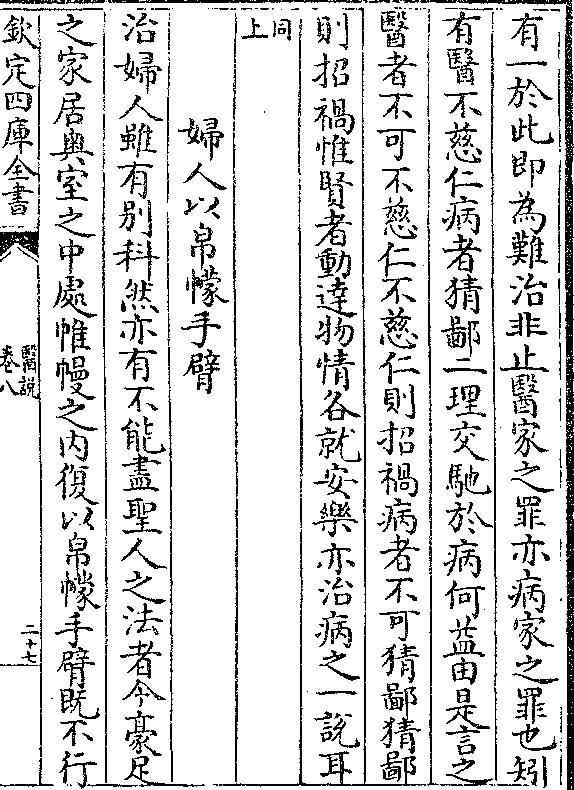 有一於此即為難治非止醫家之罪亦病家之罪也矧
有醫不慈仁病者猜鄙二理交馳於病何益由是言之
醫者不可不慈仁不慈仁則招禍病者不可猜鄙猜鄙
則招禍惟賢者動達物情各就安樂亦治病之一說耳
同上
婦人以帛幪手臂
治婦人雖有别科然亦有不能盡聖人之法者今豪足
之家居奥室之中處帷幔之内復以帛幪手臂既不行
欽定四庫全書
醫説
卷八
二十七